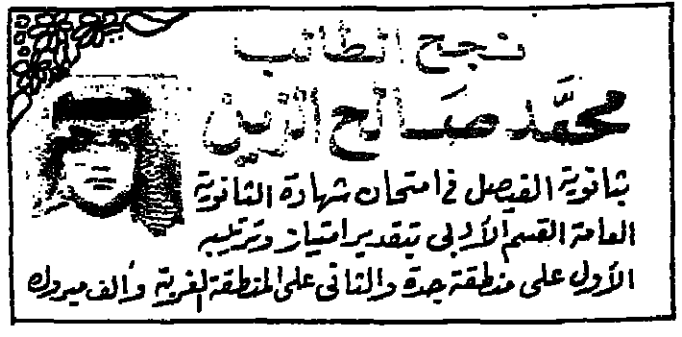 نجح الطالب
محمَّد صالح الزين
بثانوية الفيصل في امتحان شهادة الثانوية
العامة القسم الأدبي بتقدير امتياز وترتيبه
الأول على منطقة جدة والثاني على المنطقة الغربية وألف مبروك